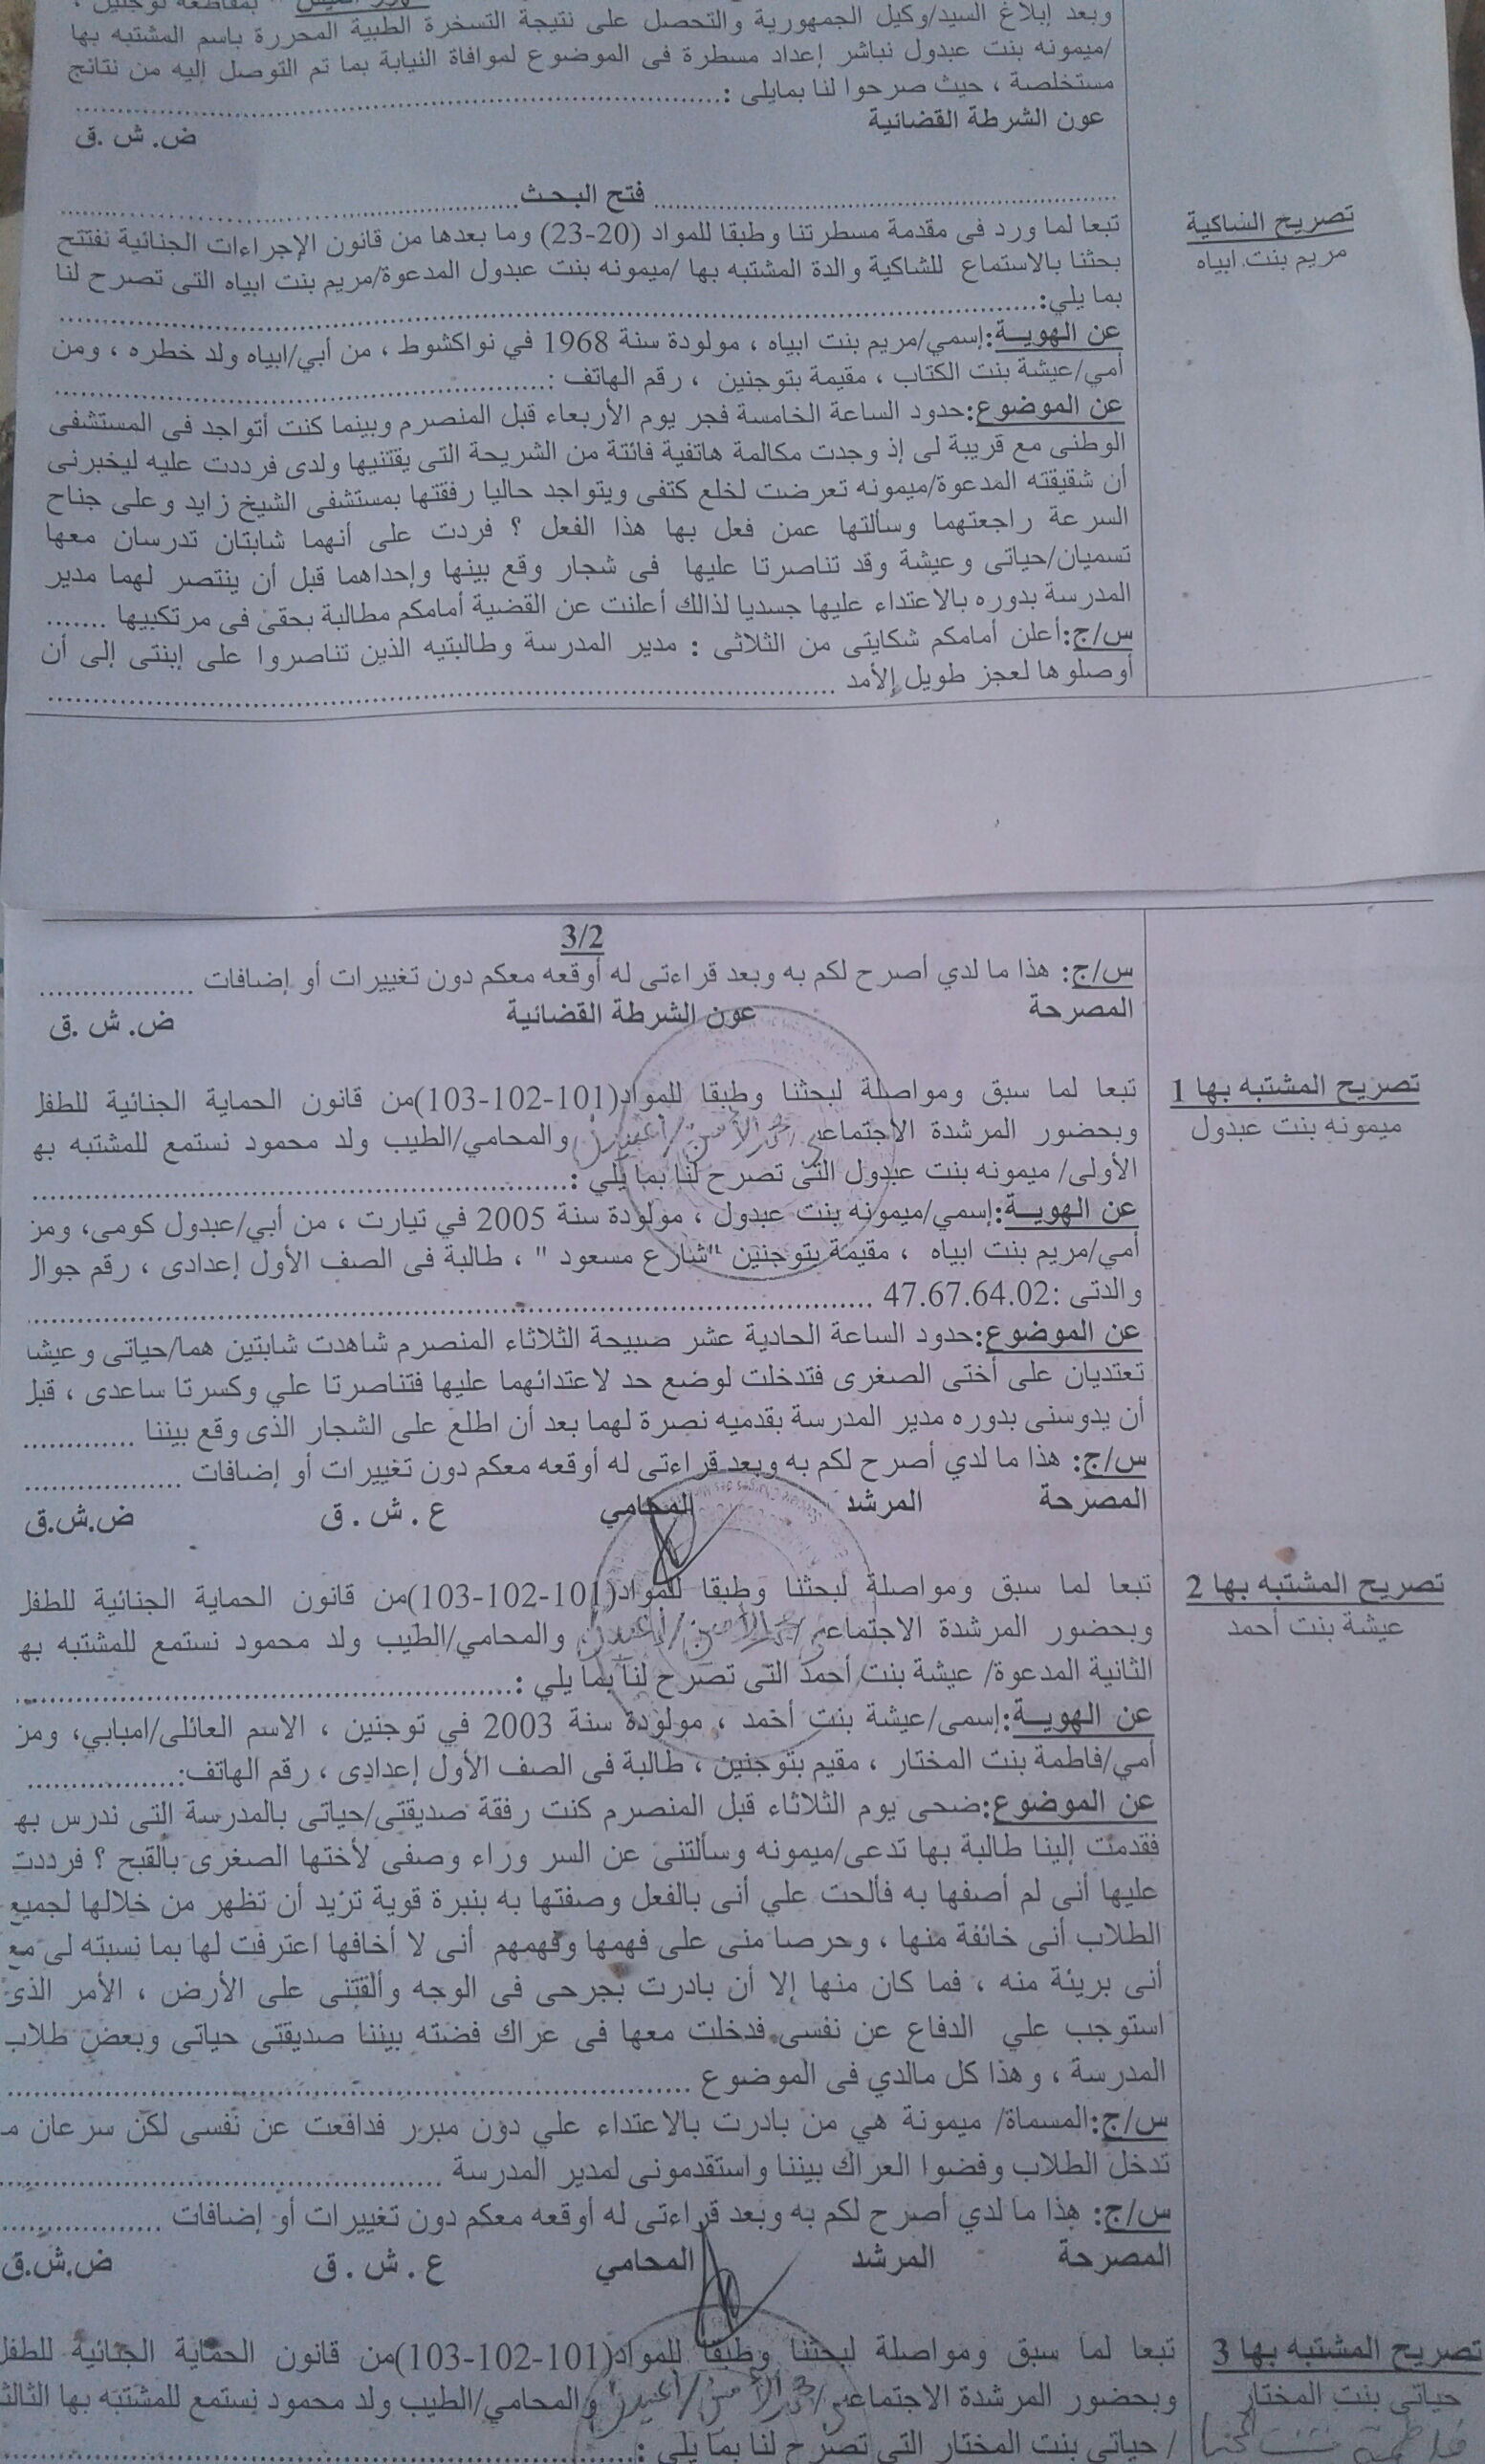 بمقاطعة توجنين ،
وبعد إبلاغ السيد/وكيل الجمهورية والتحصل على نتيجة التسخرة الطبية المحررة باسم المشتبه بها
/ميمونه بنت عبدول نباشر إعداد مسطرة فى الموضوع لموافاة النيابة بما تم التوصل إليه من نتائج
مستخلصة ، حيث صرحوا لنا بمايلى :
عون الشرطة القضائية
ض. ش .ق
فتح البحث
تصريح الشاكية
مريم بنت ابياه
تبعا لما ورد فى مقدمة مسطرتنا وطبقا للمواد (20-23) وما بعدها من قانون الإجراءات الجنائية نفتتح
بحثنا بالاستماع للشاكية والدة المشتبه بها /ميمونه بنت عبدول المدعوة/مريم بنت ابياه التى تصرح لنا
بما يلي:
عن الهويـة:إسمي/مريم بنت ابياه ، مولودة سنة 1968 في نواكشوط ، من أبي/ابياه ولد خطره ، ومن
أمي/عيشة بنت الكتاب ، مقيمة بتوجنين ، رقم الهاتف :
عن الموضوع:حدود الساعة الخامسة فجر يوم الأربعاء قبل المنصرم وبينما كنت أتواجد فى المستشفى
الوطنى مع قريبة لى إذ وجدت مكالمة هاتفية فائتة من الشريحة التى يقتنيها ولدى فرددت عليه ليخبرنى
أن شقيقته المدعوة/ميمونه تعرضت لخلع كتفى ويتواجد حاليا رفقتها بمستشفى الشيخ زايد وعلى جناح
السرعة راجعتهما وسألتها عمن فعل بها هذا الفعل ؟ فردت على أنهما شابتان تدرسان معها
تسميان/حياتى وعيشة وقد تناصرتا عليها فى شجار وقع بينها وإحداهما قبل أن ينتصر لهما مدير
المدرسة بدوره بالاعتداء عليها جسديا لذالك أعلنت عن القضية أمامكم مطالبة بحقى فى مرتكبيها .......
س/ج:أعلن أمامكم شكايتى من الثلاثى : مدير المدرسة وطالبتيه الذين تناصروا على إبنتى إلى أن
أوصلوها لعجز طويل الأمد
3/2
س/ج: هذا ما لدي أصرح لكم به وبعد قراءتى له أوقعه معكم دون تغييرات أو إضافات
المصرحة عون الشرطة القضائية ض. ش .ق
تصريح المشتبه بها 1
ميمونه بنت عبدول
تبعا لما سبق ومواصلة لبحثنا وطبقا للمواد(101-102-103)من قانون الحماية الجنائية للطفل
وبحضور المرشدة الاجتماعي والمحامي/الطيب ولد محمود نستمع للمشتبه به
الأولى/ ميمونه بنت عبدول التى تصرح لنا بما يلي :
عن الهويـة:إسمي/ميمونه بنت عبدول ، مولودة سنة 2005 في تيارت ، من أبي/عبدول كومى، ومز
أمي/مريم بنت ابياه ، مقيمة بتوجنين "شارع مسعود " ، طالبة فى الصف الأول إعدادى ، رقم جوال
والدتى :47.67.64.02
عن الموضوع:حدود الساعة الحادية عشر صبيحة الثلاثاء المنصرم شاهدت شابتين هما/حياتى وعيشا
تعتديان على أختى الصغرى فتدخلت لوضع حد لاعتدائهما عليها فتناصرتا علي وكسرتا ساعدى ، قبل
أن يدوسنى بدوره مدير المدرسة بقدميه نصرة لهما بعد أن اطلع على الشجار الذى وقع بيننا
س/ج: هذا ما لدي أصرح لكم به وبعد قراءتى له أوقعه معكم دون تغييرات أو إضافات
المصرحة المرشد المحامي ع . ش . ق ض.ش.ق
تصريح المشتبه بها 2
عيشة بنت أحمد
تبعا لما سبق ومواصلة لبحثنا وطبقا للمواد(101-102-103)من قانون الحماية الجنائية للطفل
وبحضور المرشدة الاجتماعي والمحامي/الطيب ولد محمود نستمع للمشتبه به
الثانية المدعوة/ عيشة بنت أحمد التى تصرح لنا بما يلي :
عن الهويـة:إسمى/عيشة بنت أحمد ، مولودة سنة 2003 في توجنين ، الاسم العائلى/امبابي، ومز
أمي/فاطمة بنت المختار ، مقيم بتوجنين ، طالبة فى الصف الأول إعدادى ، رقم الهاتف:
عن الموضوع:ضحى يوم الثلاثاء قبل المنصرم كنت رفقة صديقتى/حياتى بالمدرسة التى ندرس به
فقدمت إلينا طالبة بها تدعى/ميمونه وسألتنى عن السر وراء وصفى لأختها الصغرى بالقبح ؟ فرددت
عليها أنى لم أصفها به فألحت علي أنى بالفعل وصفتها به بنبرة قوية تزيد أن تظهر من خلالها لجميع
الطلاب أنى خائفة منها ، وحرصا منى على فهمها وفهمهم أنى لا أخافها اعترفت لها بما نسبته لى مع
أنى بريئة منه ، فما كان منها إلا أن بادرت بجرحى فى الوجه وألقتنى على الأرض ، الأمر الذى
استوجب علي الدفاع عن نفسى فدخلت معها فى عراك فضته بيننا صديقتى حياتى وبعض طلاب
المدرسة ، وهذا كل مالدي فى الموضوع
س/ج:المسماة/ ميمونة هي من بادرت بالاعتداء علي دون مبرر فدافعت عن نفسى لكن سرعان مـ
تدخل الطلاب وفضوا العراك بيننا واستقدمونى لمدير المدرسة
س/ج: هذا ما لدي أصرح لكم به وبعد قراءتى له أوقعه معكم دون تغييرات أو إضافات
المصرحة المرشد المحامي ع . ش . ق ض.ش.ق
تصريح المشتبه بها 3
حياتى بنت المختار
تبعا لما سبق ومواصلة لبحثنا وطبقا للمواد(101-102-103)من قانون الحماية الجنائية للطفل
وبحضور المرشدة الاجتماعي والمحامي/الطيب ولد محمود نستمع للمشتبه بها الثالث
/ حياتى بنت المختار التى تصرح لنا بما يلي :